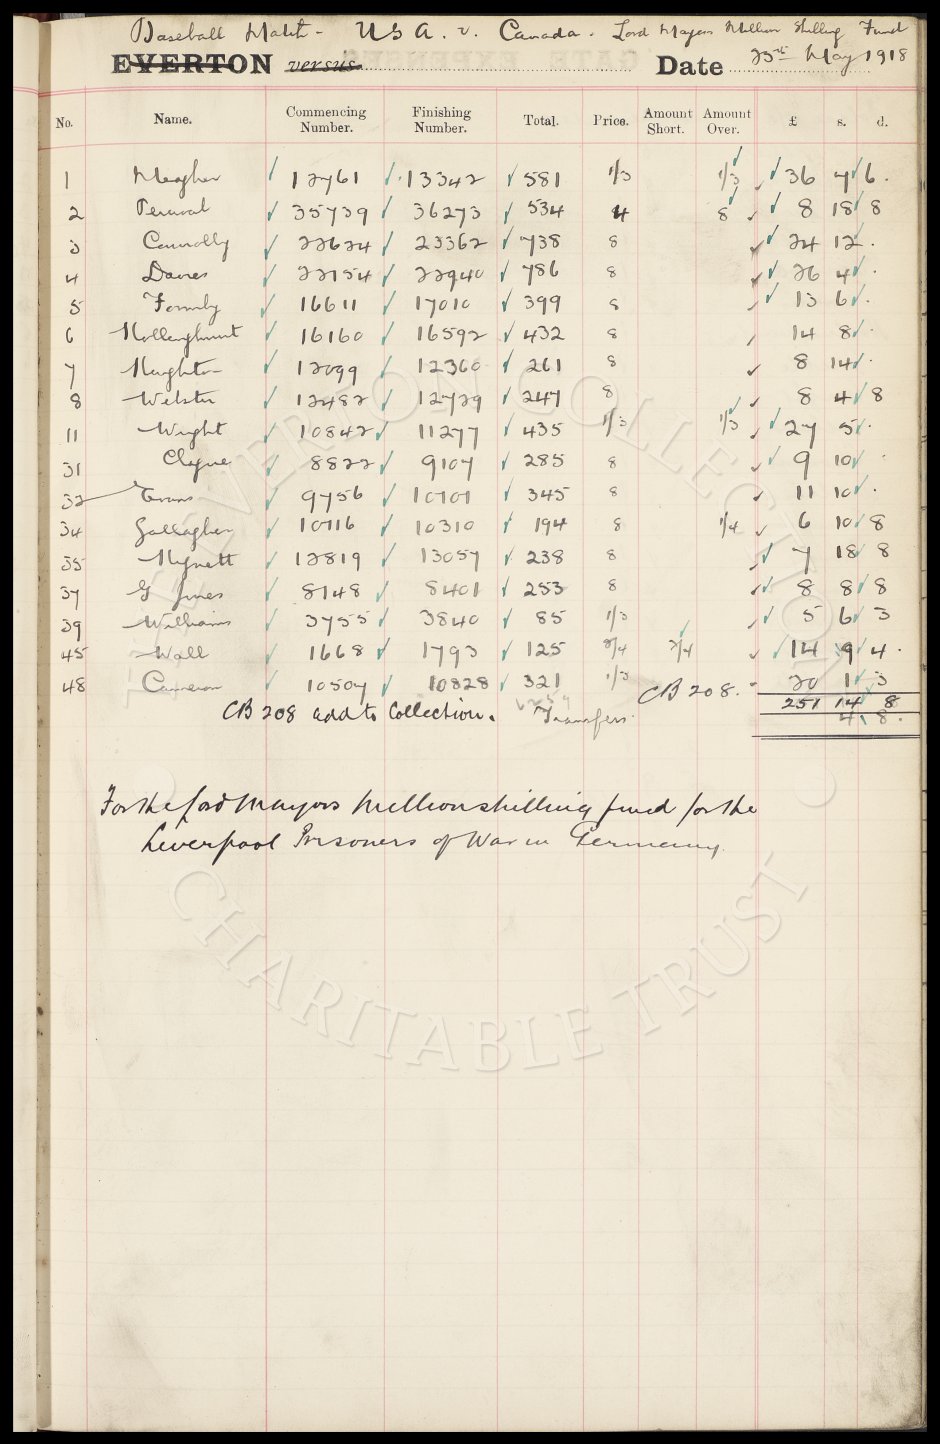 Baseball Match - U S A. v. Canada. Lord Mayors Million Shilling Fund
EVERTON versus Date 25th May 1918
No. Name. Commencing Number. Finishing Number. Total. Price. Amount Short. Amount Over. £ s. d.
1 Meagher 12761 13342 581 1/3 1/3 36 7 6.
2 Percival 35739 36273 534 4 8 8 18 8
3 Connolly 22624 23362 738 8 24 12.
4 Davies 22154 22940 786 8 26 4.
5 Formby 16611 17010 399 8 13 6.
6 Hollinghurst 16160 16592 432 8 14 8.
7 Haughton 12099 12360 261 8 8 14.
8 Webster 12482 12729 247 8 8 4 8
11 Wright 10842 11277 435 1/3 1/3 27 5.
31 Clyne 8822 9107 285 8 9 10.
32 Evans 9756 10101 345 8 11 10.
34 Gallagher 10116 10310 194 8 1/4 6 10 8
35 Mynett 12819 13057 238 8 7 18 8
37 G Jones 8148 8401 253 8 8 8 8
39 Williams 3755 3840 85 1/3 5 6 3
45 Wall 1668 1793 125 2/4 2/4 14 9 4.
48 Cameron 10507 10828 321 1/3 20 1 3
CB 208. 251 14 8
CB 208 add to Collection. Transfers. 4 8.
For the Lord Mayors Million shilling fund for the
Liverpool Prisoners of War in Germany.
EVERTON COLLECTION
CHARITABLE TRUST